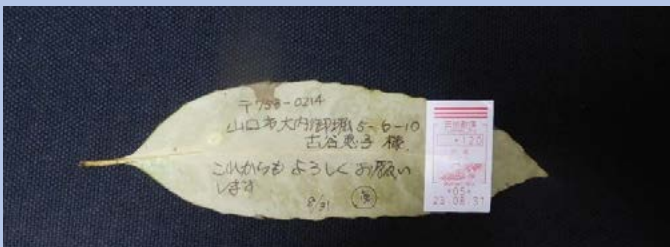 〒753-0214
山口市大内御堀5-6-10
古谷恵子 様
これからもよろしくお願い
します
8/31
日本郵便
*120
*05*
23.08.31